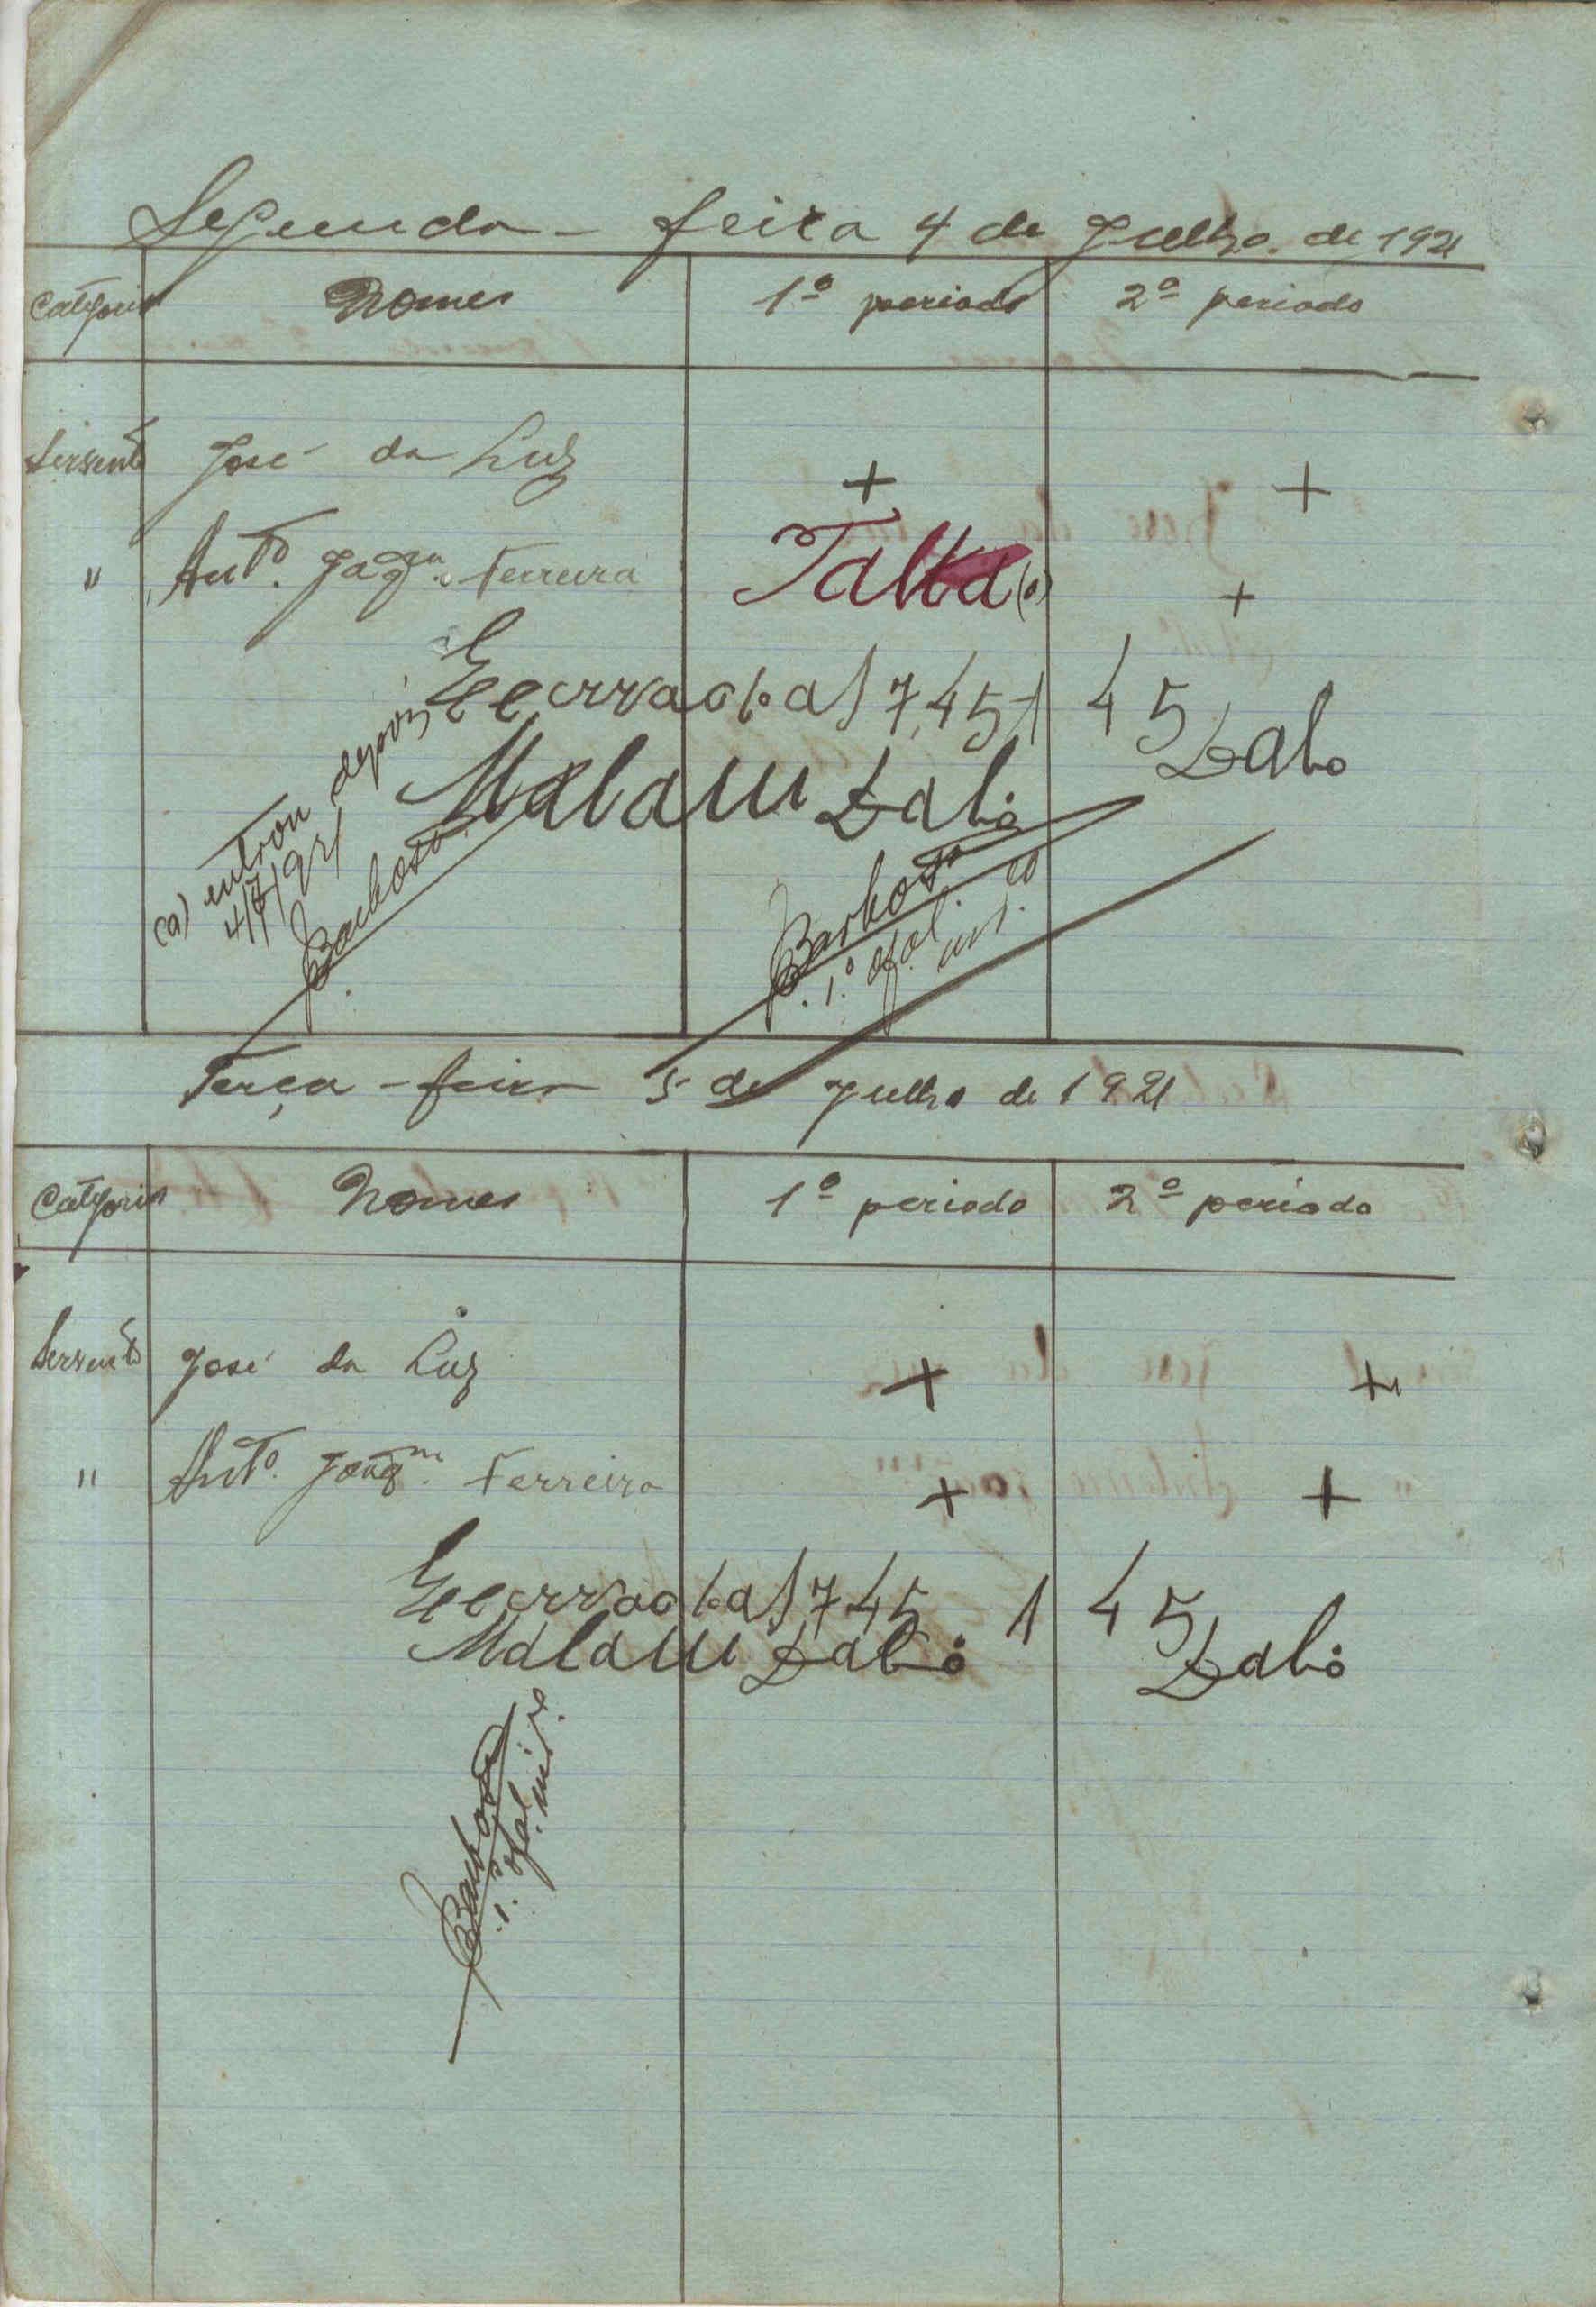 Segunda - feira 4 de Julho de 1921
Categoria Nomes 1º periodo 2º periodo
Servente José da Luz + +
" Antº. Joaqm. Ferreira Falta (a) +
Ecerrado as 7,45 1 45 Dabo
Malam Dabó
(a) entrou depois
4/7/921
Barbosa
Barbosa
1.º ofal. int.º
Terça - feira 5 de Julho de 1921
Categoria Nomes 1º periodo 2º periodo
Servente José da Luz + +
" Antº. Joaqm. Ferreira + +
Ecerrado as 7 45 1 45 Dabó
Malam Dabó
Barbosa
1.º ofal. int.